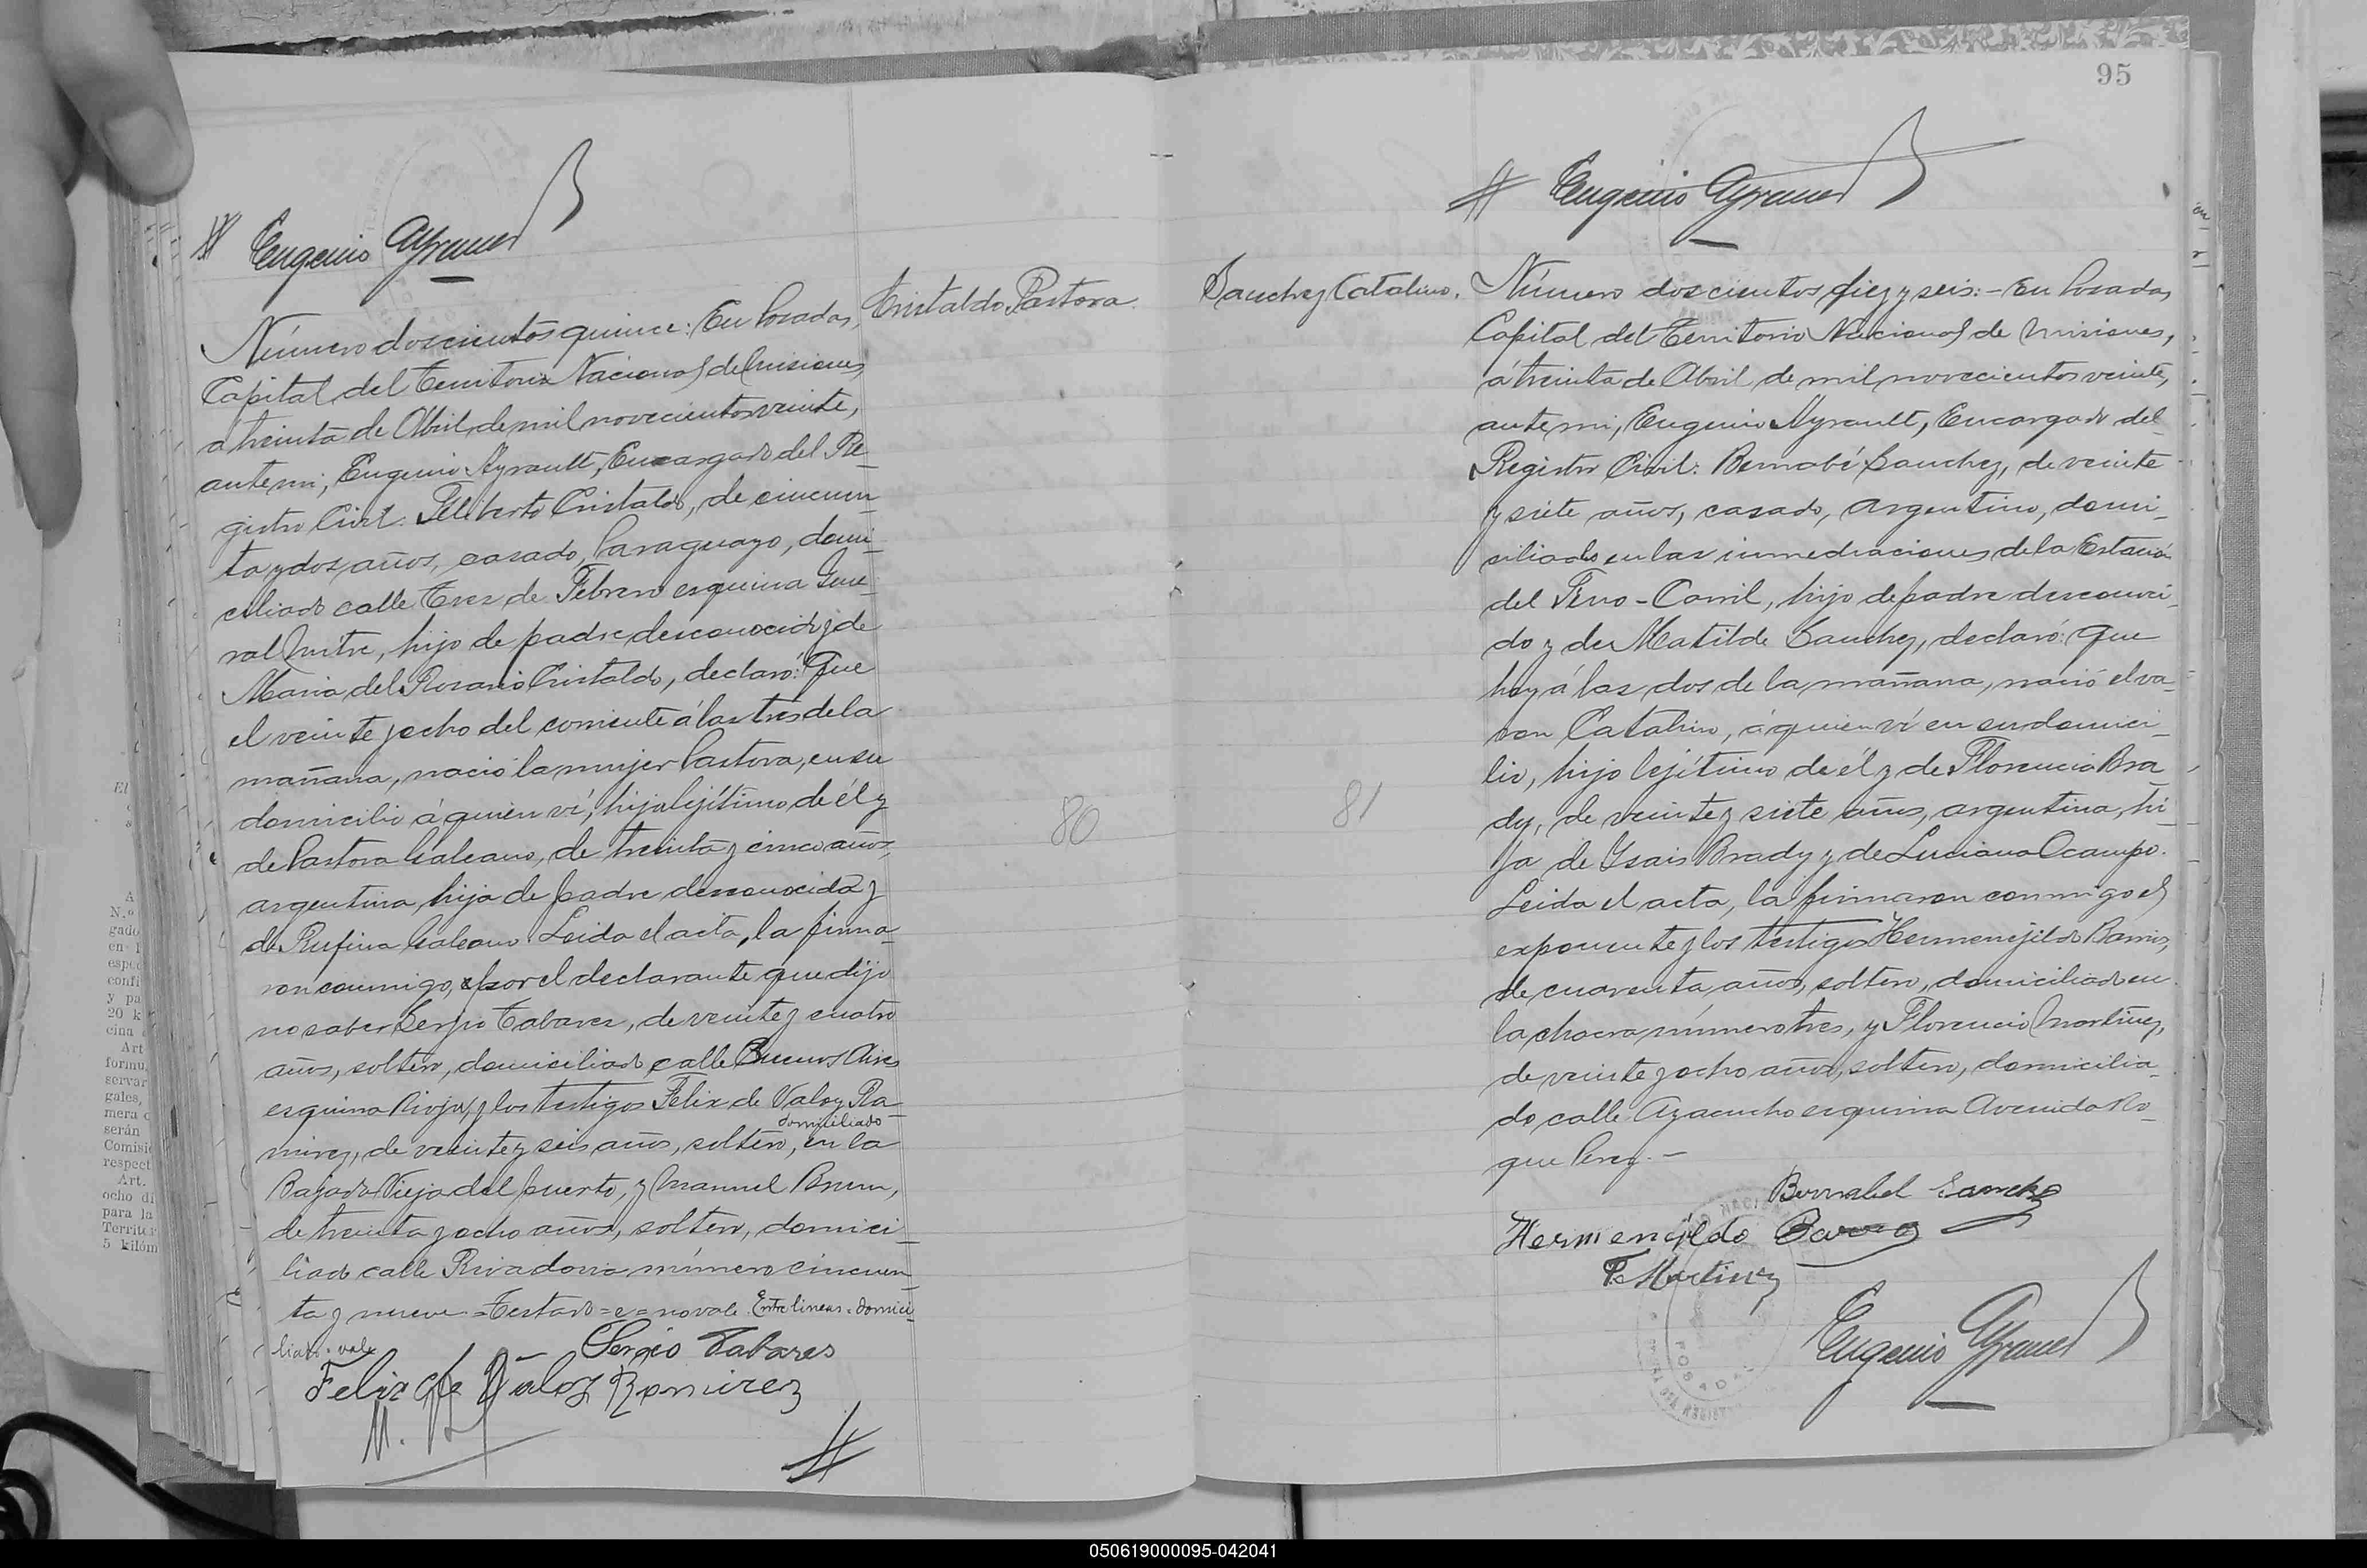 Eugenio Ayrault
Cristaldo Pastora.
Número doscientos quince: En Posadas,
Capital del Territorio Nacional de Misiones,
á treinta de Abril de mil novecientos veinte,
ante mi, Eugenio Ayrault, Encargado del Re-
gistro Civil: Feliberto Cristaldo, de cincuen-
ta y dos años, casado, Paraguayo, domi-
ciliado calle Tres de Febrero esquina Gene-
ral Mitre, hijo de padre desconocido y de
Maria del Rosario Cristaldo, declaró: Que
el veinte y ocho del corriente á las tres de la
mañana, nació la mujer Pastora, en su
domicilio á quien ví, hija lejítima de él y
de Pastora Galeano, de treinta y cinco años,
argentina, hija de padre desconocido y
de Rufina Galeano. Leida el acta, la firma-
ron conmigo, e por el declarante que dijo
no saber Sergio Tabares, de veinte y cuatro
años, soltero, domiciliado calle Buenos Aires
esquina Rioja, y los testigos Felix de Valoy Ra-
domiciliado
mirez, de veinte y seis años, soltero, en la
Bajada Vieja del puerto, y Manuel Brum,
de treinta y ocho años, soltero, domici-
liado calle Rivadavia número cincuen-
ta y nueve = Testado = e = no vale. Entre lineas = domici-
liado = vale
Sergio Tabares
Felix de Valoz Ramirez
80
95
Eugenio Ayrault
Sanchez Catalino.
Número doscientos diez y seis: - En Posadas,
Capital del Territorio Nacional de Misiones,
á treinta de Abril de mil novecientos veinte,
ante mi, Eugenio Ayrault, Encargado del
Registro Civil: Bernabé Sanchez, de veinte
y siete años, casado, argentino, domi-
ciliado en las inmediaciones de la Estación
del Ferro-Carril, hijo de padre desconoci-
do y de Matilde Sanchez, declaró: Que
hoy á las dos de la mañana, nació el va-
ron Catalino, á quien ví en su domici-
lio, hijo lejítimo de él y de Florencia Bra-
dy, de veinte y siete años, argentina, hi-
ja de Isais Brady y de Luciana Ocampo.
Leida el acta, la firmaron conmigo el
exponente y los testigos Hermenejildo Barrios,
de cuarenta años, soltero, domiciliado en
la chacra número tres, y Florencio Martinez,
de veinte y ocho años, soltero, domicilia-
do calle Ayacucho esquina Avenida Ro-
que Perez. -
81
Bernabel Sanchez
Hermenejildo
F. Martinez
Eugenio Ayrault
050619000095-042041